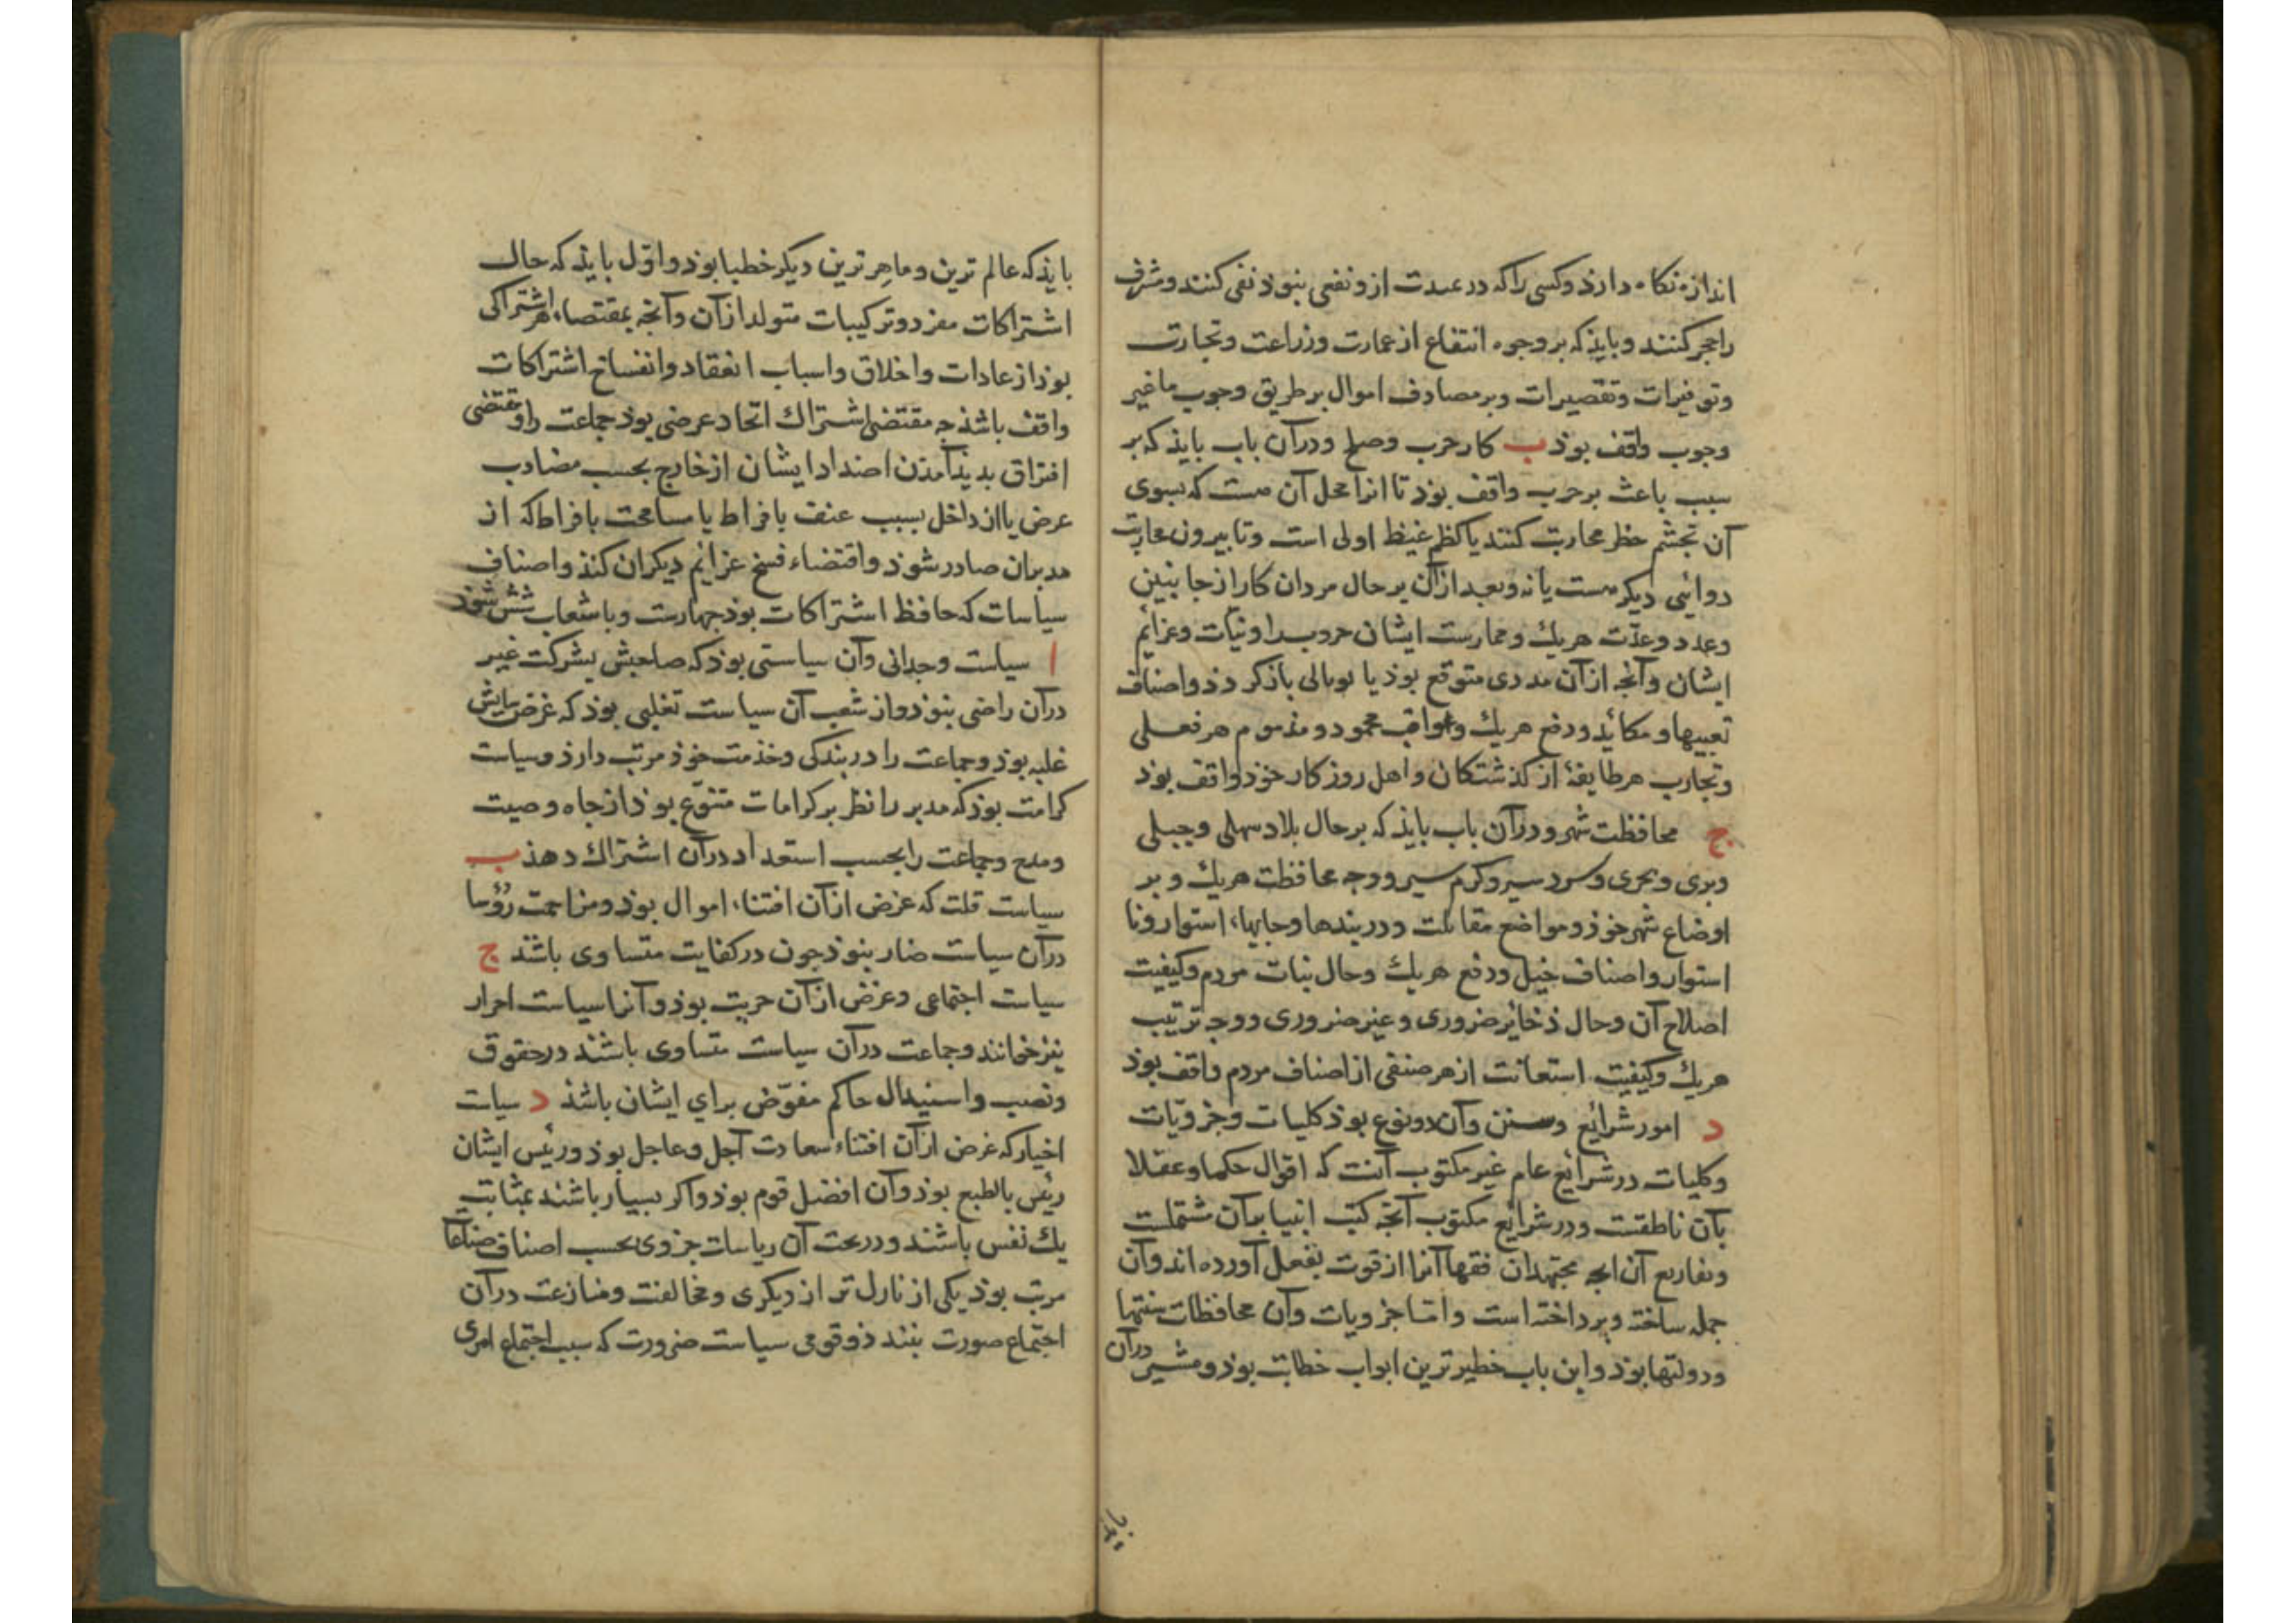 اندازه نکاه دارذ وکسی را که در عدت ازو نفعی نبوذ نفی کنند و مترف
را حجر کنند و بایذ که بر وجوه انتفاع از عمارت و زراعت و تجارت
و توفیرات و تقصیرات و بر مصارف اموال بر طریق وجوب یا غیر
وجوب واقف بوذ ب کار حرب و صلح و در آن باب بایذ که بر
سبب باعث بر حرب واقف بوذ تا انرا محل آن هست که بسوی
آن تجشم خطر محاربت کنند یا کظم غیظ اولی است و تا بیرون محاربت
دوائی دیکر هست یا نه و بعد از آن بر حال مردان کار از جانبین
و عدد و عدّت هریك و ممارست ایشان حروب را و نیّات و عزائم
ایشان و آنجه از آن مددی متوقع بوذ یا وبالی باز کردذ و اصناف
تعبیها و مکائذ و دفع هریك و عواقب محمود و مذموم هر فعلی
و تجارب هر طایفهٔ از کذشتکان و اهل روزکار خوذ واقف بوذ
ج محافظت شهر و در آن باب بایذ که بر حال بلاد سهلی و جبلی
و بری و بحری و سردسیر و کرم سیر و وجه محافظت هریك و بر
اوضاع شهر خوذ و مواضع مقابلت و دربندها و جایهاء استوار و نا
استوار و اصناف خیل و دفع هریك و حال نیات مردم و کیفیت
اصلاح آن و حال ذخایر ضروری و غیر ضروری و وجه ترتیب
هریك و کیفیت استعانت از هر صنفی از اصناف مردم واقف بوذ
د امور شرائع و سنن و آن دو نوع بوذ کلیات و جزویّات
و کلیات در شرائع عام غیر مکتوب آنست که اقوال حکما و عقلا
بآن ناطقست و در شرائع مکتوب آنجه کتب انبیا بر آن مشتملست
و تفاریع آن انجه مجتهدان فقها آنرا از قوت بفعل آورده اند و آن
جمله ساخته و برداخته است و امّا جزویات و آن محافظات سنتها
و دولتها بوذ و این باب خطیرترین ابواب خطابت بوذ و مشیر در آن
بایذ که عالم ترین و ماهر ترین دیکر خطبا بوذ و اوّل بایذ که حال
اشتراکات مفرد و ترکیبات متولد از آن و آنجه بمقتضاء هر اشتراکی
بوذ از عادات و اخلاق و اسباب انعقاد و انفساخ اشتراکات
واقف باشذ جه مقتضی اشتراك اتحاد عرضی بوذ جماعت را و مقتضی
افتراق بدیذ آمذن اضداد ایشان از خارج بحسب مضادت
عرض یا از داخل بسبب عنف بافراط یا مسامحت بافراط که از
مدبران صادر شوذ و اقتضاء فسخ عزائم دیکران کنذ و اصناف
سیاسات که حافظ اشتراکات بوذ جهارست و با شعاب شش شوذ
ا سیاست وحدانی و آن سیاستی بوذ که صاحبش بشرکت غیر
در آن راضی نبوذ و از شعب آن سیاست تغلبی بوذ که غرض سایش
غلبه بوذ و جماعت را در بندکی و خذمت خوذ مرتب دارذ و سیاست
کرامت بوذ که مدبر را نظر بر کرامات متنوّع بوذ از جاه و صیت
و مدح و جماعت را بحسب استعداد در آن اشتراك دهذ ب
سیاست قلت که غرض از آن اقتناء اموال بوذ و مزاحمت رؤسا
در آن سیاست ضار نبوذ جون در کفایت متساوی باشند ج
سیاست اجتماعی و غرض از آن حریت بوذ و آنرا سیاست احرار
نیز خوانند و جماعت در آن سیاست متساوی باشند در حقوق
و نصب و استبدال حاکم مفوّض برای ایشان باشذ د سیاست
اخیار که غرض از آن اقتناء سعادت آجل و عاجل بوذ و رئیس ایشان
رئیس بالطبع بوذ و آن افضل قوم بوذ و اکر بسیار باشند بمثابت
یك نفس باشند و در تحت آن ریاسات جزوی بحسب اصناف صناعا
مرتب بوذ یکی از نازل تر از دیکری و مخالفت و منازعت در آن
اجتماع صورت نبندذ و قومی سیاست ضرورت که سبب اجتماع امری